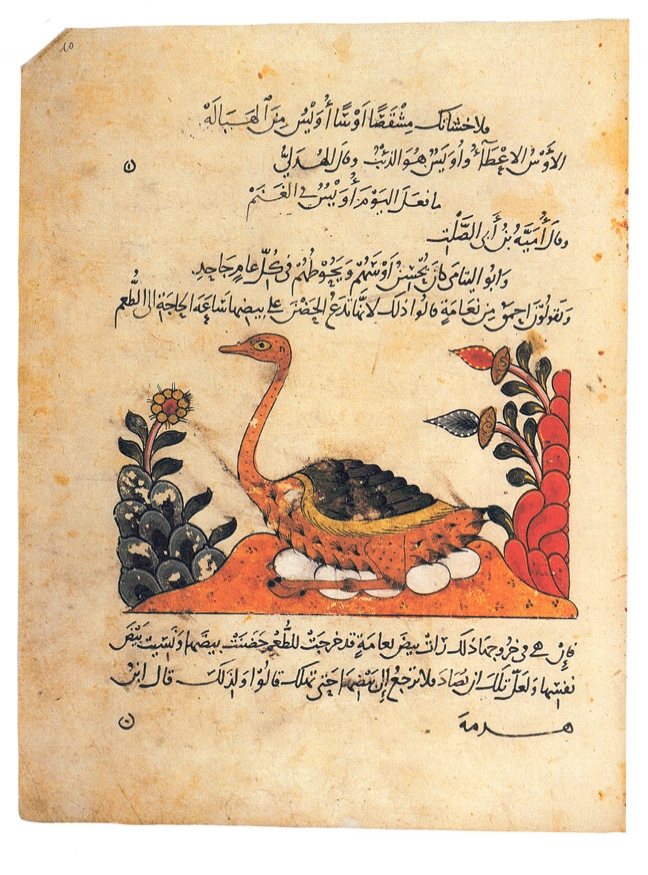 ١٥
فلاحشانك مشقصًا اوسًا أُوَيْسُ من الهباله
الأوس الإعطآء وأُوَيس هو الذئب وقال الهذلي
ما فعل اليوم أويس في الغنم
وقال أمية بن أبي الصلت
وابو اليتامى كان يحسن اوسهم ويحوطهم في كل عام جاحد
ويقولون احمق من نعامة قالوا ذلك لانها تدع الحضن على بيضها ساعة الحاجة الى الطعم
فان هي في خروجها ذلك رات بيض نعامة قد خرجت للطعم حضنت بيضها ونسيت بيض
نفسها ولعل تلك ان تصاد فلا ترجع إلى بيضها حتى تهلك قالوا ولذلك قال ابن
هرمة